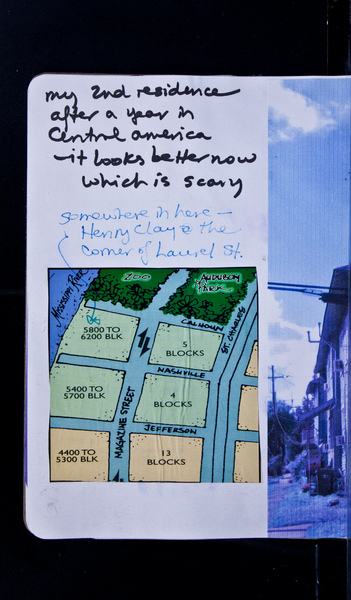 my 2nd residence
after a year in
Central america
- it looks better now
which is scary
somewhere in here -
Henry Clay @ the
corner of Laurel St.
Mississippi River
ZOO
AUDUBON
PARK
CALHOUN
ST. CHARLES
5800 TO
6200 BLK
5
BLOCKS
NASHVILLE
5400 TO
5700 BLK
4
BLOCKS
MAGAZINE STREET
JEFFERSON
4400 TO
5300 BLK
13
BLOCKS